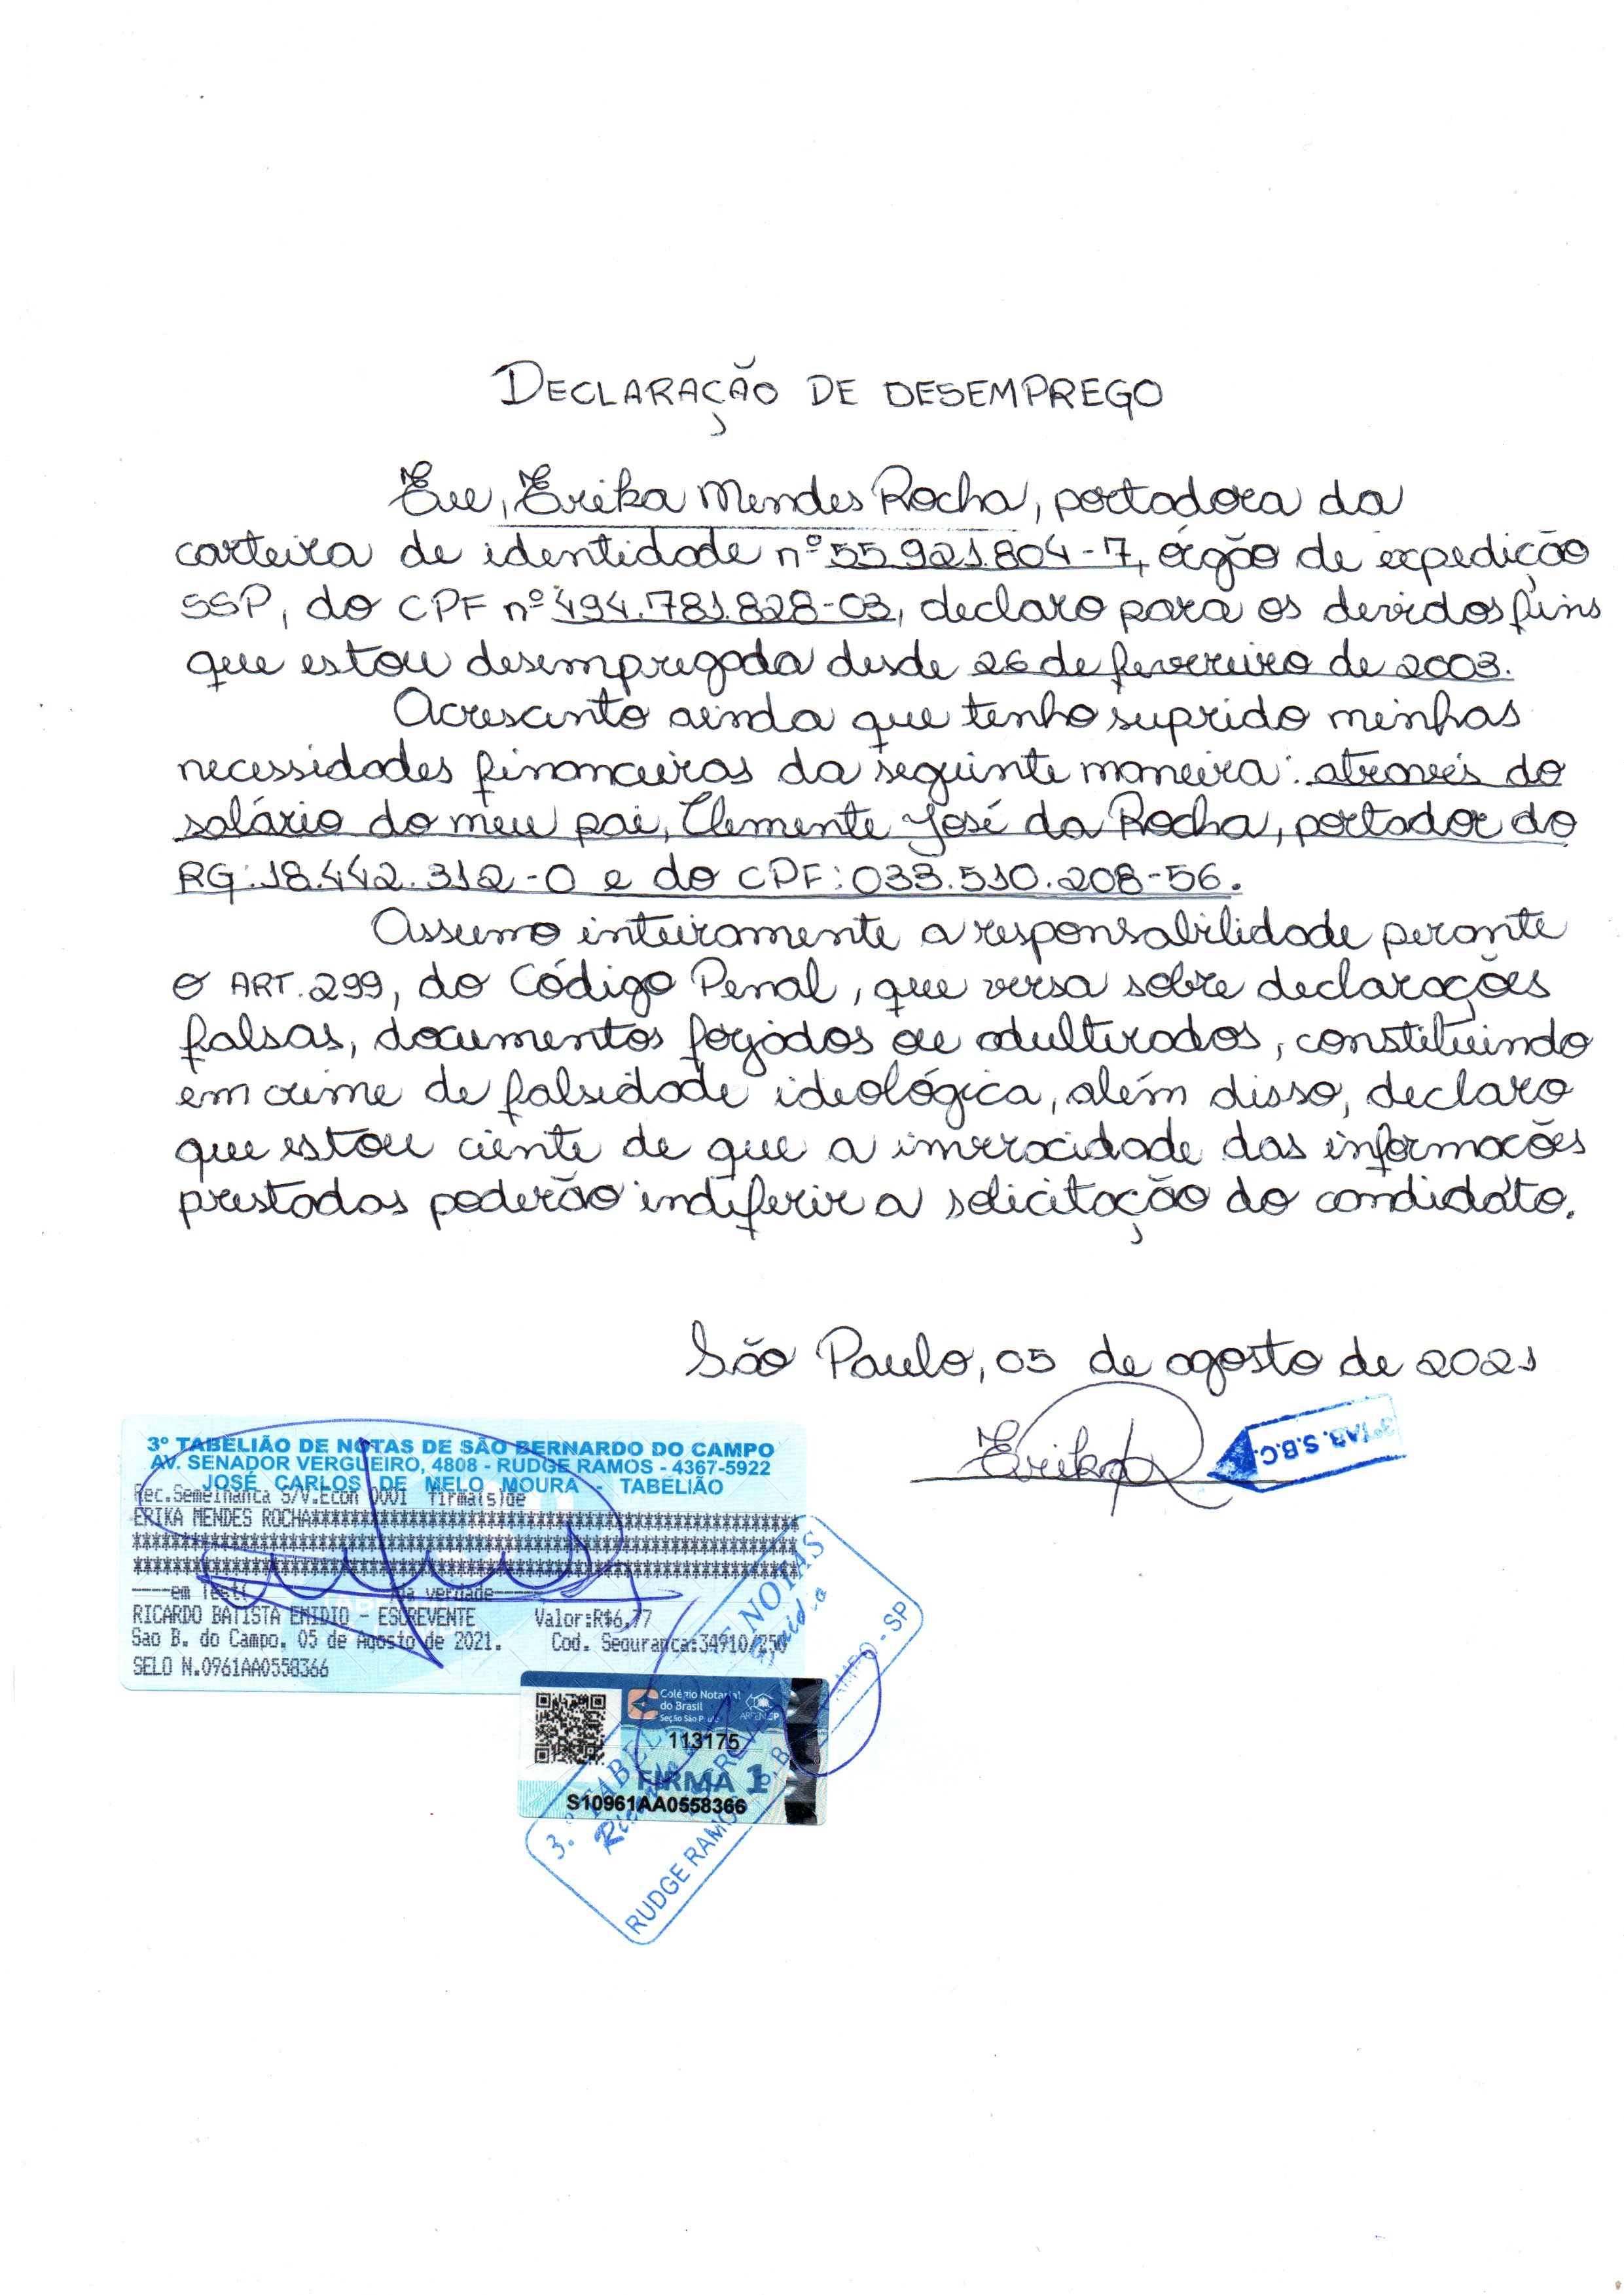 DECLARAÇÃO DE DESEMPREGO
Eu, Erika Mendes Rocha, portadora da
carteira de identidade nº 55.921.804-7, órgão de expedição
SSP, do CPF nº 494.781.828-03, declaro para os devidos fins
que estou desempregada desde 26 de fevereiro de 2003.
Acrescinto ainda que tenho suprido minhas
necessidades financeiras da seguinte maneira: através do
salário do meu pai, Clemente José da Rocha, portador do
RG: 18.442.312-0 e do CPF: 033.510.208-56.
Assumo inteiramente a responsabilidade perante
o ART. 299, do Código Penal, que versa sobre declarações
falsas, documentos forjados ou adulterados, constituindo
em crime de falsidade ideológica, além disso, declaro
que estou ciente de que a inveracidade das informacões
prestadas poderão indiferir a solicitação do candidato.
São Paulo, 05 de agosto de 2021
Erika
3º TAB. S.B.C.
3º TABELIÃO DE NOTAS DE SÃO BERNARDO DO CAMPO
AV. SENADOR VERGUEIRO, 4808 - RUDGE RAMOS - 4367-5922
JOSÉ CARLOS DE MELO MOURA - TABELIÃO
Rec.Semelhanca S/V.Econ 0001 firma(s)de
ERIKA MENDES ROCHA************************************************
******************************************************************
******************************************************************
----em Test( da verdade-----
RICARDO BATISTA EMIDIO - ESCREVENTE Valor:R$6,77
Sao B. do Campo, 05 de Agosto de 2021. Cod. Seguranca:34910/250
SELO N.0961AA0558366
Colégio Notarial
do Brasil
Seção São Paulo
ARPEN SP
113175
FIRMA 1
S10961AA0558366
3.º TABEL E NOTAS
RUDGE RAMOS S. B. AMPO - SP